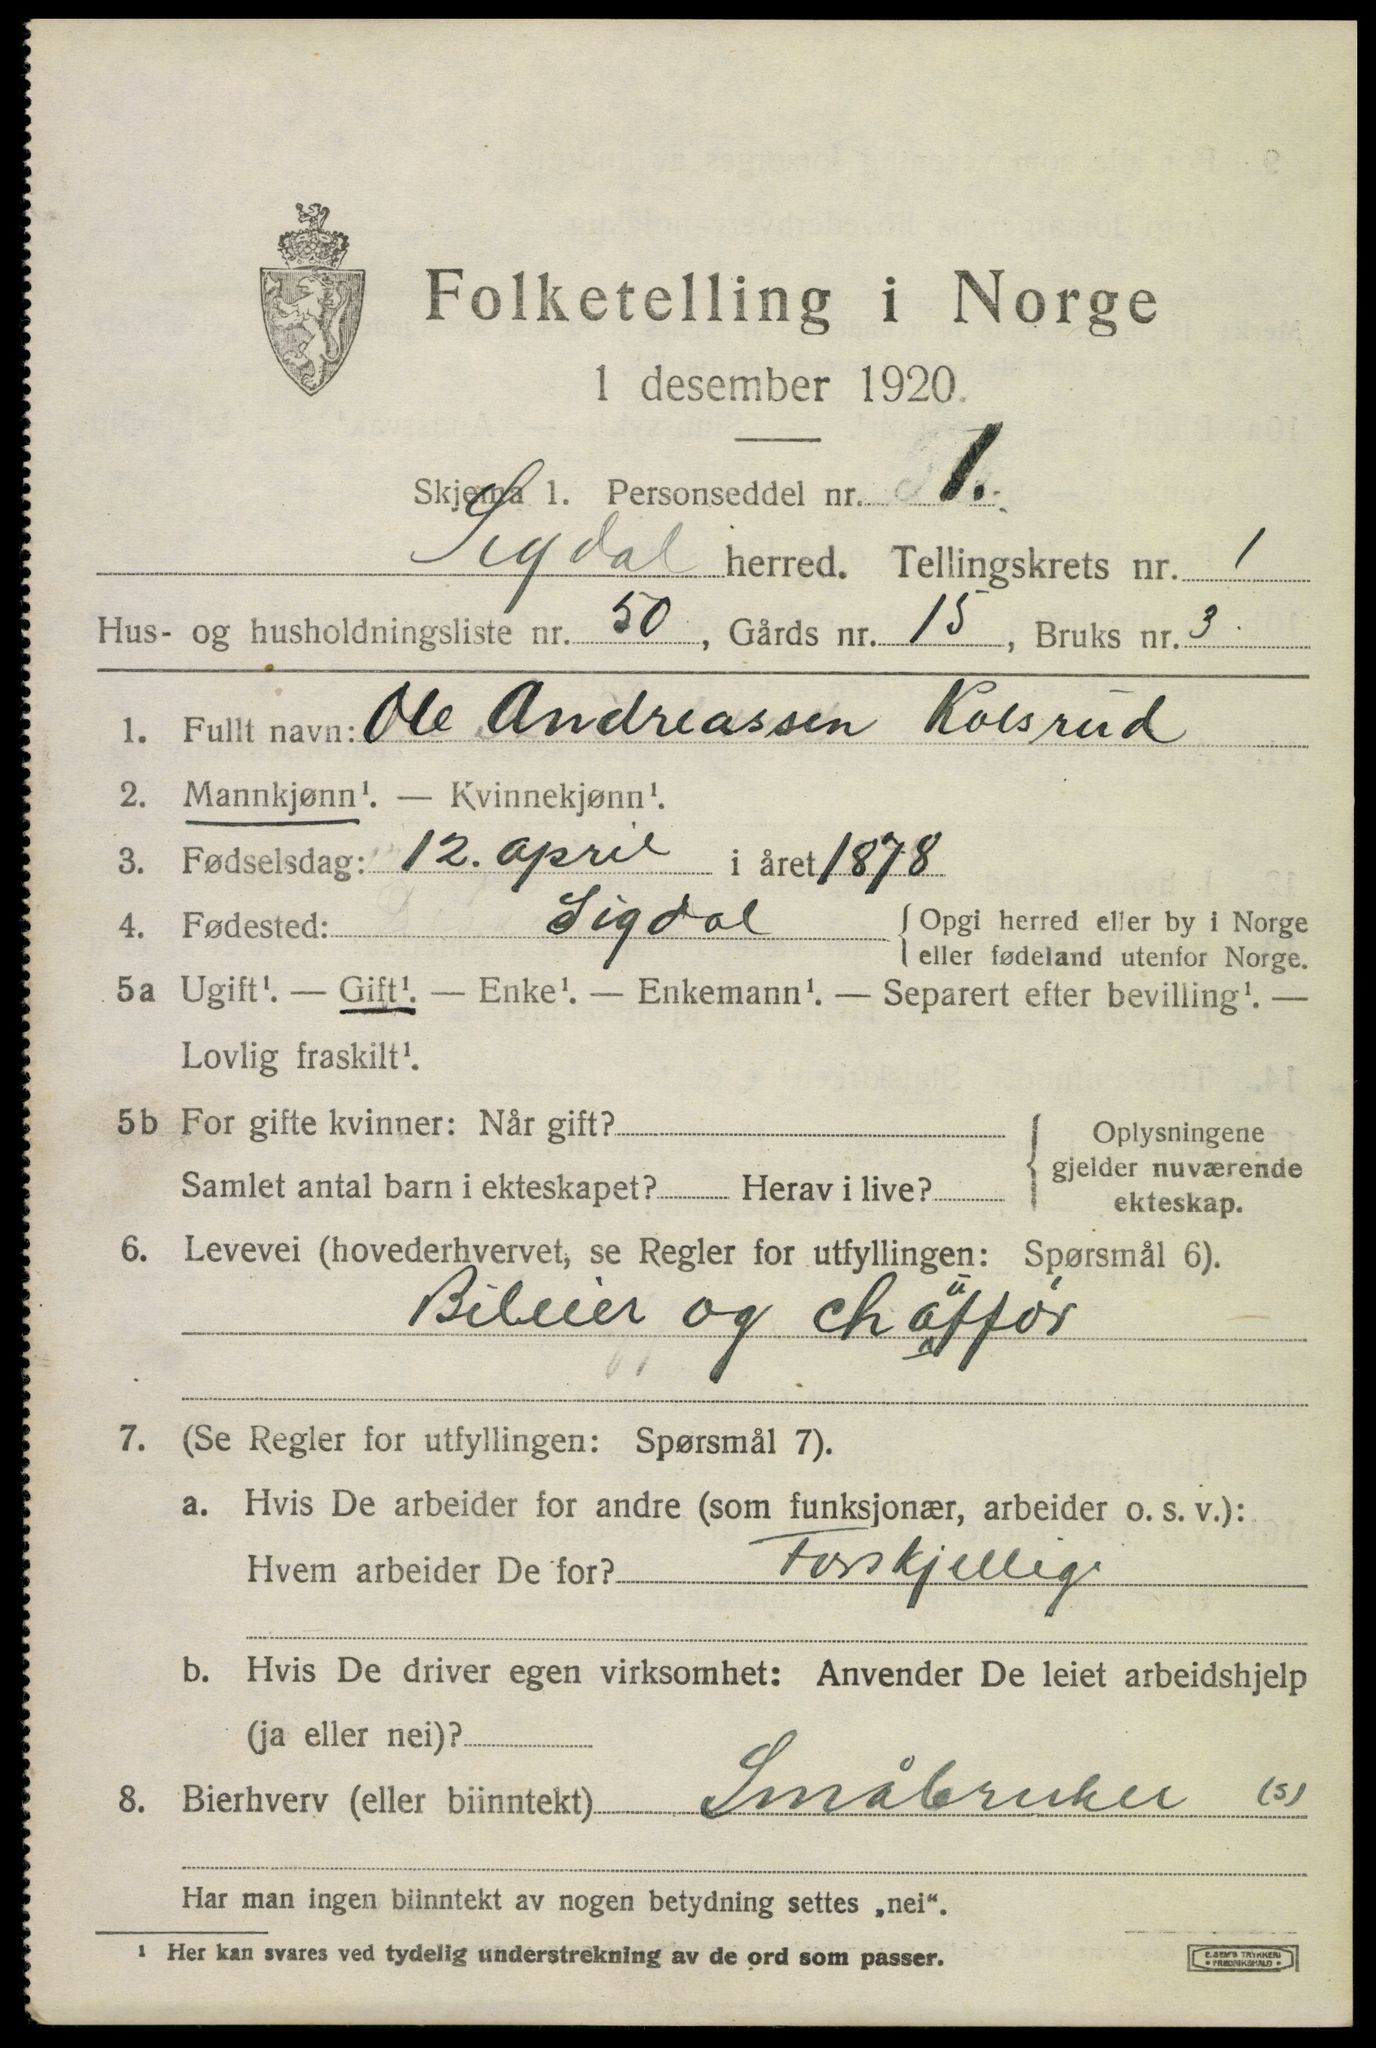 Folketelling i Norge
1 desember 1920.
Skjema 1. Personseddel nr. 1.
Sigdal herred. Tellingskrets nr. 1
Hus- og husholdningsliste nr. 50, Gårds nr. 15, Bruks nr. 3
1. Fullt navn: Ole Andreassen Kolsrud
2. Mannkjønn¹. — Kvinnekjønn¹.
3. Fødselsdag: 12. april i året 1878
4. Fødested: Sigdal { Opgi herred eller by i Norge
eller fødeland utenfor Norge.
5a Ugift¹. — Gift¹. — Enke¹. — Enkemann¹. — Separert efter bevilling¹. —
Lovlig fraskilt¹.
5b For gifte kvinner: Når gift?
Samlet antal barn i ekteskapet? Herav i live?
{ Oplysningene
gjelder nuværende
ekteskap.
6. Levevei (hovederhvervet, se Regler for utfyllingen: Spørsmål 6).
Bileier og chauffør
7. (Se Regler for utfyllingen: Spørsmål 7).
a. Hvis De arbeider for andre (som funksjonær, arbeider o. s. v.):
Hvem arbeider De for? Forskjellige
b. Hvis De driver egen virksomhet: Anvender De leiet arbeidshjelp
(ja eller nei)?
8. Bierhverv (eller biinntekt) Småbruker (s)
Har man ingen biinntekt av nogen betydning settes „nei“.
¹ Her kan svares ved tydelig understrekning av de ord som passer.
E. SEM'S TRYKKERI
• FREDRIKSHALD •